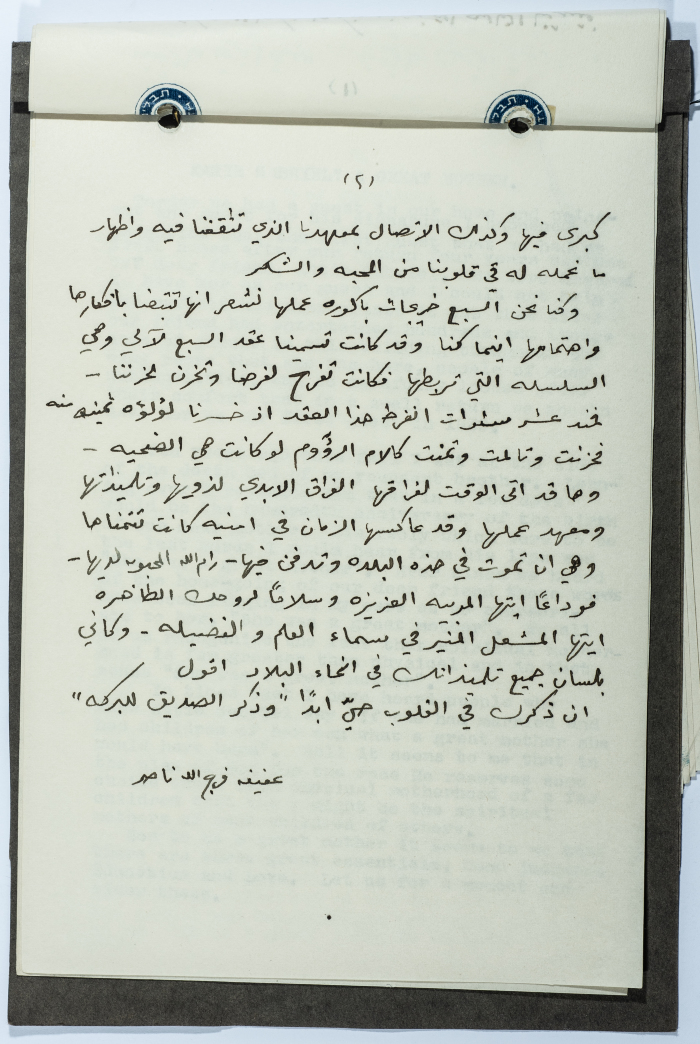 (٢)
كبرى فيها وكذلك الاتصال بمعهدنا الذي تثقفنا فيه واظهار
ما نحمله له في قلوبنا من المحبه والشكر
وكنا نحن السبع خريجات باكوره عملها نشعر انها تتبعنا بافكارها
واهتمامها اينما كنا وقد كانت تسمينا عقد السبع لآلي وهي
السلسله التي تربطها فكانت تفرح لفرحنا وتحزن لحزننا -
فمنذ عشر سنوات انفرط هذا العقد اذ خسرنا لؤلؤه ثمينه منه
فحزنت وتالمت وتمنت كالام الرؤوم لو كانت هي الضحيه -
وها قد اتى الوقت لفراقها الفراق الابدي لذويها وتلميذاتها
ومعهد عملها وقد عاكسها الزمان في امنيه كانت تتمناها
وهي ان تموت في هذه البلده وتدفن فيها - رام الله المحبوبه لديها -
فوداعًا ايتها المربيه العزيزه وسلامًا لروحك الطاهره
ايتها المشعل المنير في سماء العلم و الفضيله - وكاني
بلسان جميع تلميذاتك في انحاء البلاد اقول
ان ذكرك في القلوب حيّ ابدًا "وذكر الصديق للبركه"
عفيفه فرج الله ناصر